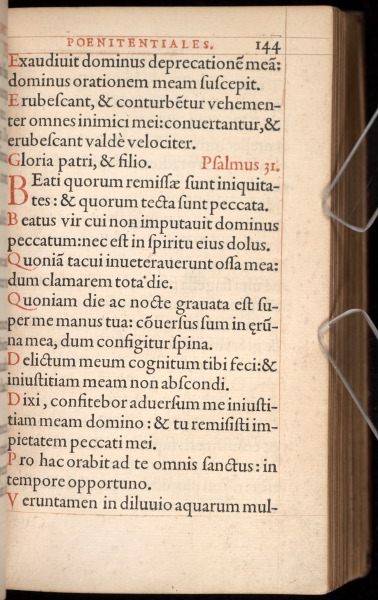 POENITENTIALES. 144
Exaudiuit dominus deprecationē meā:
dominus orationem meam ſuſcepit.
Erubeſcant, & conturbētur vehemen-
ter omnes inimici mei: conuertantur, &
erubeſcant valdè velociter.
Gloria patri, & filio. Pſalmus 31.
BEati quorum remiſſæ ſunt iniquita-
tes: & quorum tecta ſunt peccata.
Beatus vir cui non imputauit dominus
peccatum: nec eſt in ſpiritu eius dolus.
Quoniā tacui inueterauerunt oſſa mea:
dum clamarem tota die.
Quoniam die ac nocte grauata eſt ſu-
per me manus tua: cōuerſus ſum in ęrū-
na mea, dum configitur ſpina.
Delictum meum cognitum tibi feci: &
iniuſtitiam meam non abſcondi.
Dixi, confitebor aduerſum me iniuſti-
tiam meam domino: & tu remiſiſti im-
pietatem peccati mei.
Pro hac orabit ad te omnis ſanctus: in
tempore opportuno.
Veruntamen in diluuio aquarum mul-